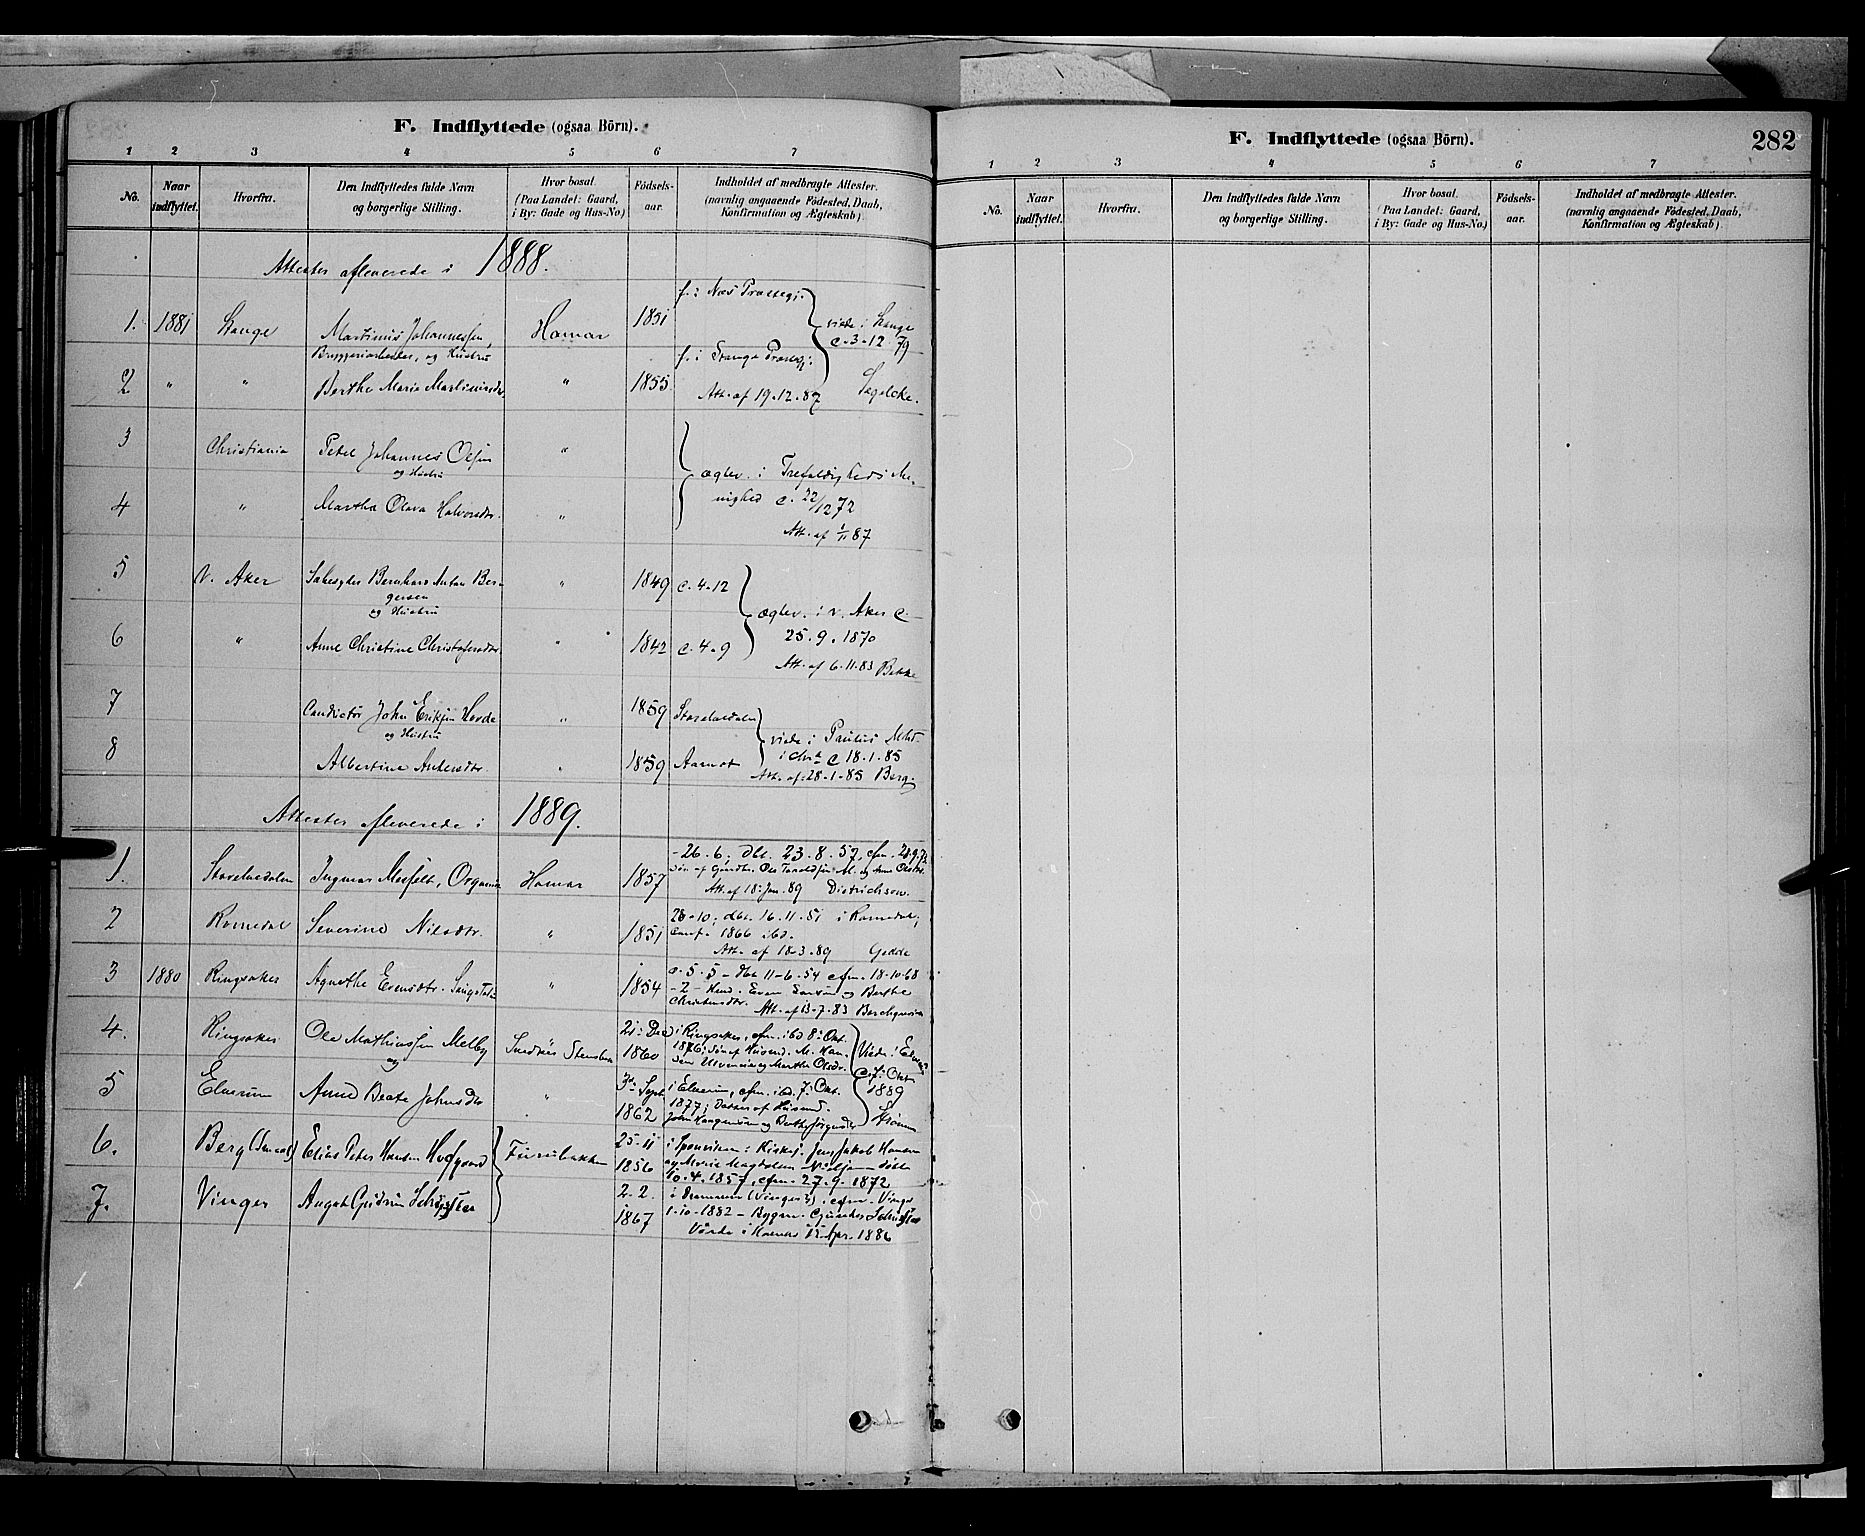 F. Indflyttede (ogsaa Börn).
1 2 3 4 5 6 7
No. Naar indflyttet. Hvorfra. Den Indflyttedes fulde Navn og borgerlige Stilling. Hvor bosat. (Paa Landet: Gaard, i By: Gade og Hus-No.) Födsels-aar. Indholdet af medbragte Attester. (navnlig angaaende Födested, Daab, Konfirmation og Ægteskab).
Attester afleverede i 1888.
f. i Nes Præstegj.
1. 1881 Stange Martinus Johannessen, Hamar 1851 viede i Stange
Bryggeriarbeider, og Hustru c. 3-12 79
f. i Stange Præstegj.
2 " " Berthe Marie Martinusdtr. " 1855. Att. af 19.12.87 Segelcke.
3 Christiania Peter Johannes Olsen "
og Hustru ægtev. i Trefoldigheds Me-
4 " Martha Olava Halvorsdtr. " nighed c. 22/12 72
Att. af 1/11 87
5 V. Aker Bernhard Anton Ber- " 1849 c. 4-12
gersen
og Hustru ægtev. i V. Aker c.
6 " Anne Christine Christofersdtr. " 1842 c. 4-9 25.9.1870
Att. af 6.11.83 Bakke
7 Conductör John Eriksen Horde " 1859 Storelvedalen
og Hustru viede i Paulus
8 Albertine Andersdtr. " 1859 Aamot i Chra c 18.1.85
Att. af 28-1-85 Berg.
Attester afleverede i 1889.
1. Storelvedalen Ingmar Messelt, Hamar 1857 -26.6; dbt. 23.8.57, cfm.
Att. af 18 Jan. 89 Dietrichson
2 Romedal Severine Nilsdtr. " 1851 -10; dbt. 16.11.51 i Romedal;
conf. 1866 ibd.
Att. af 18-3-89 Gedde
3 1880 Ringsaker Agnethe Evensdtr. " 1854 c. 5.5 - dbt 11-6-54 cfm. 18-10-68
Even og Berthe
Christensdtr. Att. af 13-7-83
4. Ringsaker Ole Mathiassen Melby 21 Dec 1860 i Ringsaker, cfm. ibd 8 Okt.
og 1876; Sön af M.
og Marthe Olsdr. Viede i
5 Elverum Anne Beate Johnsdtr " 3 Sept 1862 i Elverum, cfm. ibd. 7 Okt.
1877; Datter af Husmd. 7 Okt 1889
6. Berg Elias Peter Hansen Hofgaard Furubakken 25-11 1856 Jens Jakob Hansen
og Marie Magdalena döbt
10.4.1857, cfm. 27.9.1872
7. Vinger August Gudrun 2.2. 1867 i Drammen (Vinger), cfm. Vinger
1-10-1882
Apr. 1886
F. Indflyttede (ogsaa Börn). 282
1 2 3 4 5 6 7
No. Naar indflyttet. Hvorfra. Den Indflyttedes fulde Navn og borgerlige Stilling. Hvor bosat. (Paa Landet: Gaard, i By: Gade og Hus-No.) Födsels-aar. Indholdet af medbragte Attester. (navnlig angaaende Födested, Daab, Konfirmation og Ægteskab).